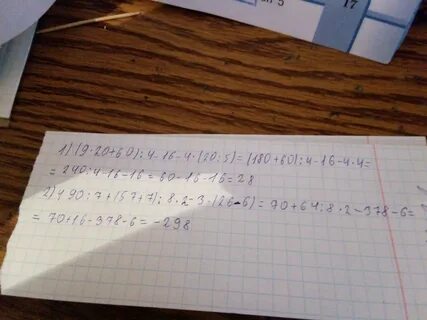 17
1) (9·20+60):4-16-4·(20:5)=(180+60):4-16-4·4=
=240:4-16-16=60-16-16=28
2) 490:7+(57+7):8·2-3·(26-6)=70+64:8·2-378-6=
=70+16-378-6=-298